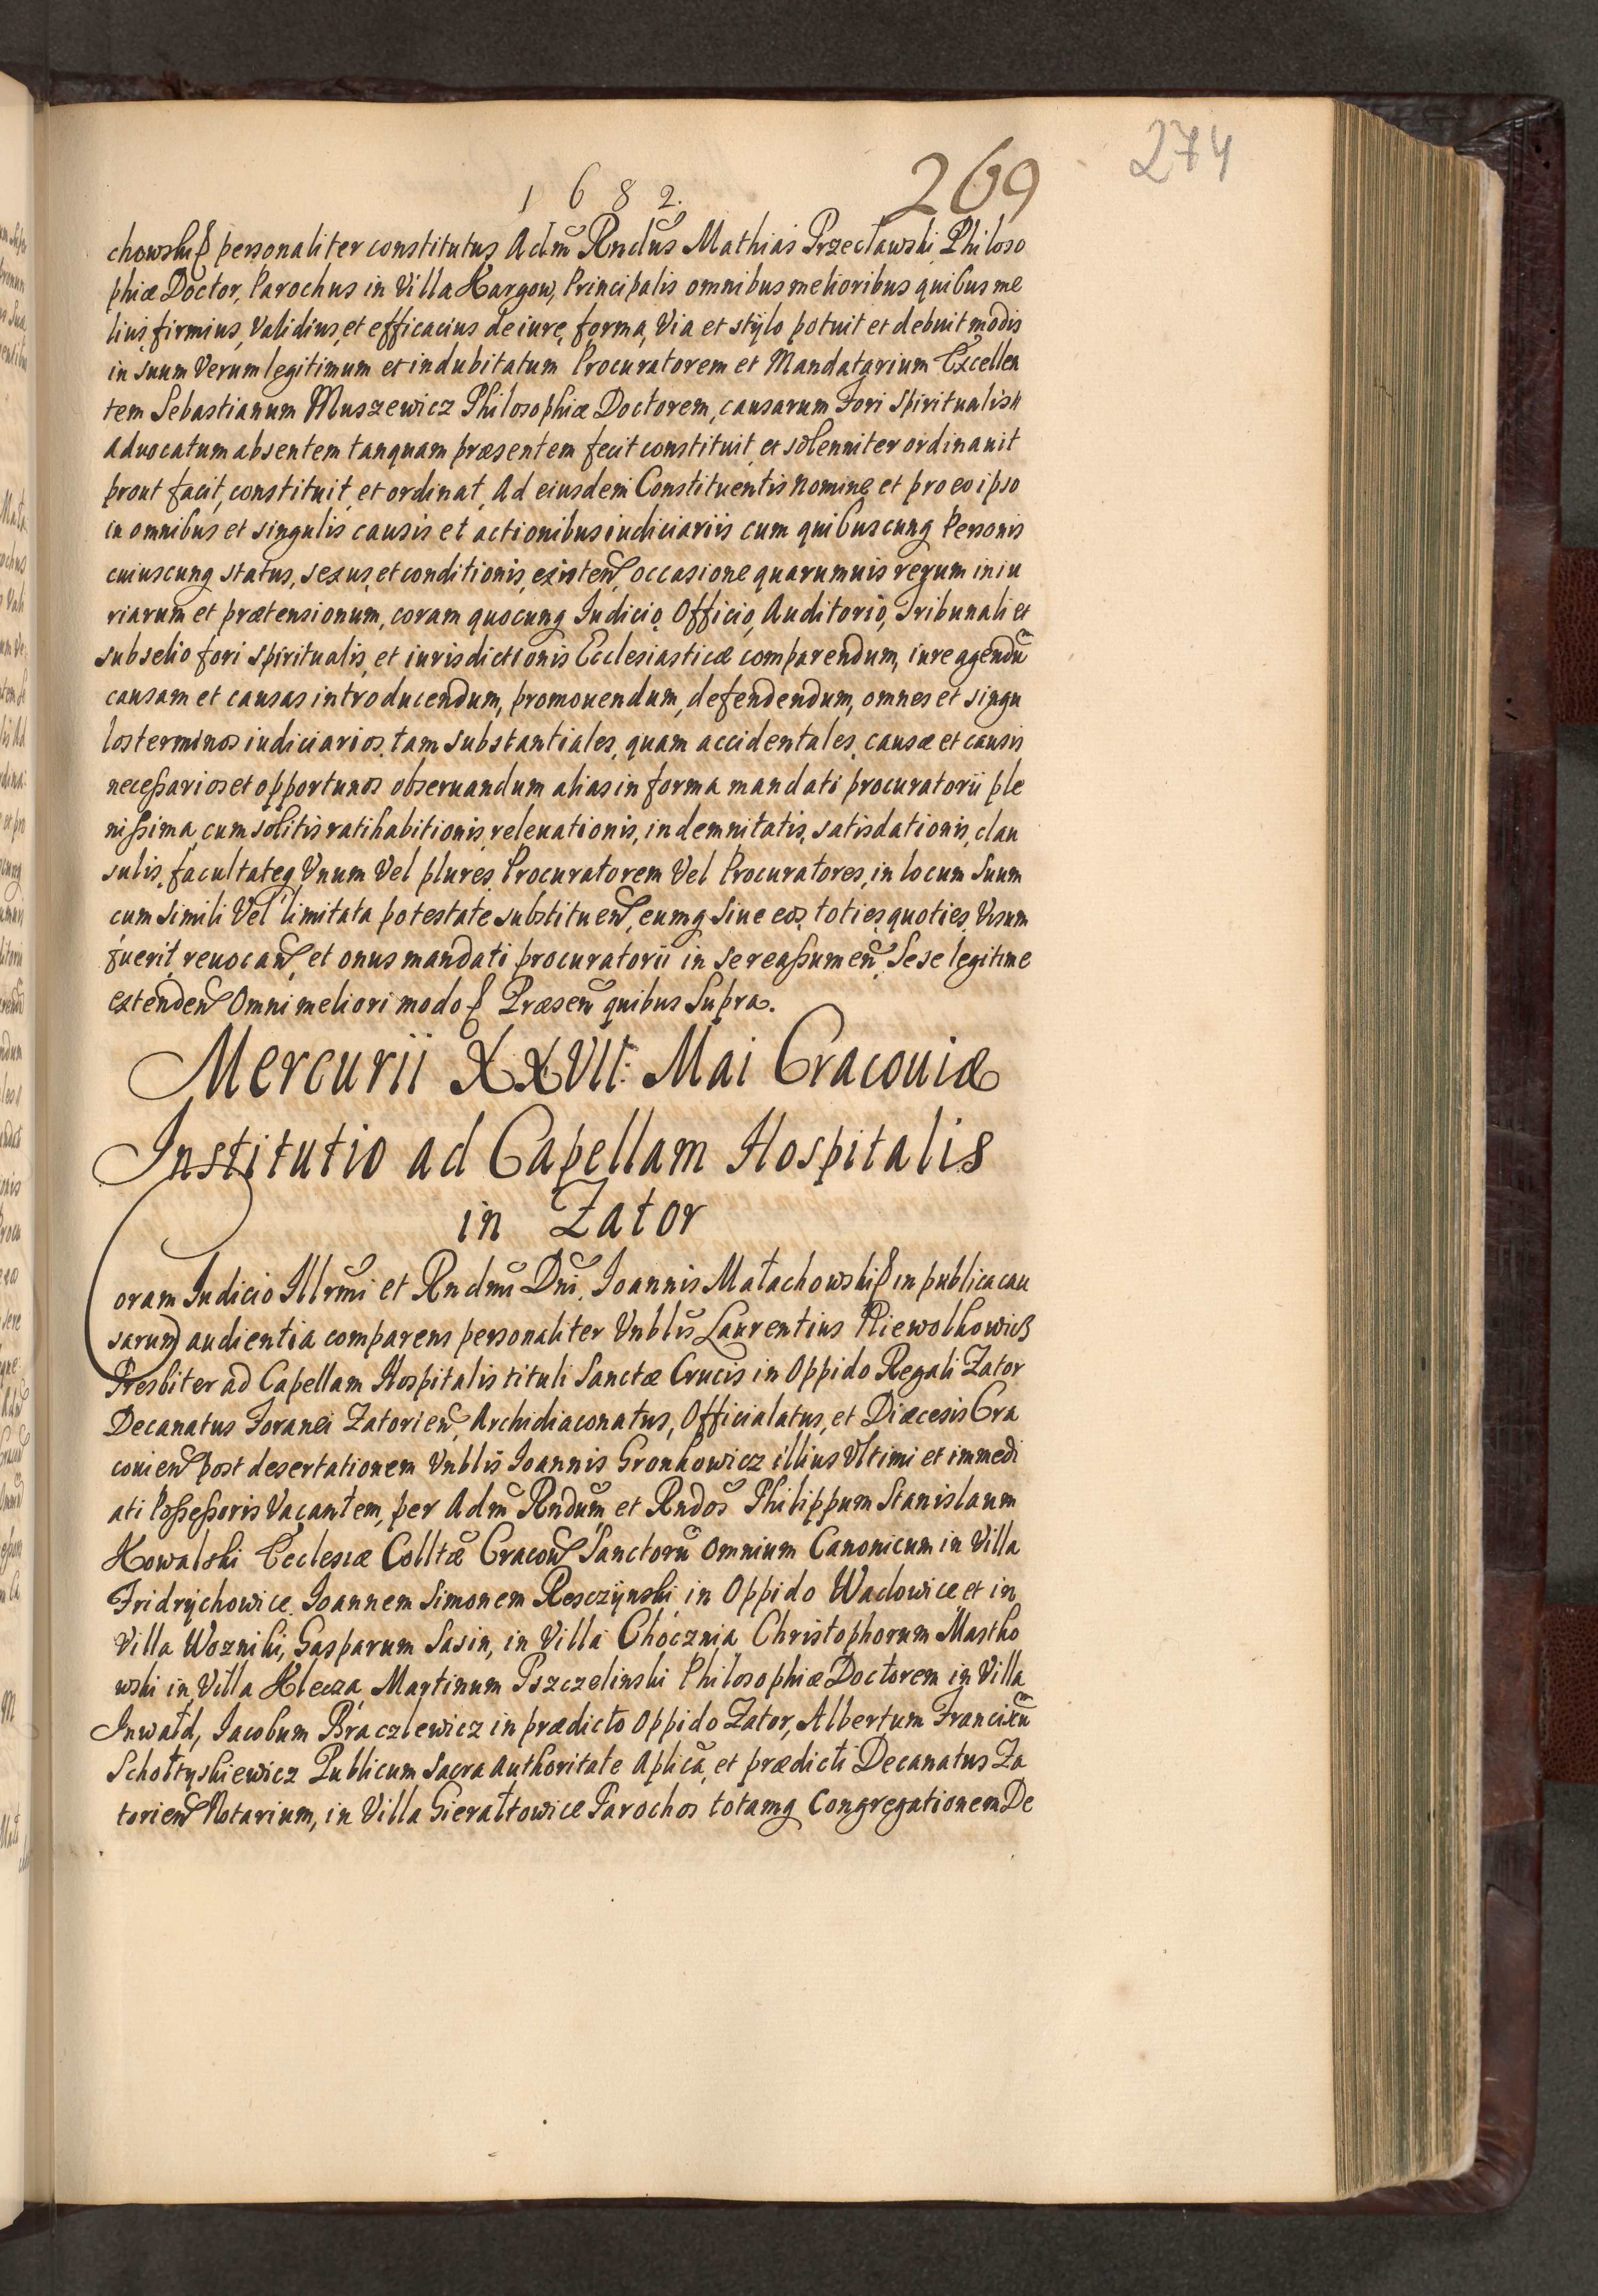 274
269
1 6 8 2.
chowski personaliter constitutus Adm̃ Rndus Mathias Przecławski Philoso
phiæ Doctor, Parochus in Villa Kargow, Principalis omnibus melioribus quibus me
lius, firmius, validius, et efficacius de iure, forma, via et stylo potuit et debuit modis
in suum verum legitimum et indubitatum Procuratorem et Mandatarium Excellen
tem Sebastianum Muszewicz Philosophiæ Doctorem, causarum Fori Spiritualis
Advocatum absentem tanquam præsentem fecit constituit et solenniter ordinauit
prout facit, constituit, et ordinat, Ad eiusdem Constituentis nomine et pro eo ipso
in omnibus et singulis causis et actionibus iudiciariis cum quibuscunq Personis
cuiuscunq status, sexus, et conditionis, existen, occasione quarumuis rerum iniu
riarum et prætensionum, coram quocunq Iudicio, Officio, Auditorio, Tribunali et
subselio fori spiritualis, et iurisdictionis Ecclesiasticæ comparendum, iure agendũ
causam et causas introducendum, promouendum, defendendum, omnes et singu
los terminos iudiciarios, tam substantiales, quam accidentales, causæ et causis
necessarios et opportunos obseruandum alias in forma mandati procuratorii ple
nissima, cum solitis ratihabitionis, releuationis, indemnitatis, satisdationis, clau
sulis, facultateq Vnum Vel plures Procuratorem Vel Procuratores, in locum Suum
cum simili Vel limitata potestate substituen, eumq siue eos, toties quoties Visum
fuerit, reuocan, et onus mandati procuratorii in se reassumen, Sese legitime
extenden Omni meliori modo Præsen quibus Supra.
Mercurii XXVII: Mai Cracouiæ
Institutio ad Capellam Hospitalis
in Zator
Coram Iudicio Illrmi et Rndmi Dñi, Ioannis Małachowski in publica cau
sarum audientia comparens personaliter Vnblis Laurentius Niewolkowicz
Presbiter ad Capellam Hospitalis tituli Sanctæ Crucis in Oppido Regali Zator
Decanatus Foranei Zatorien, Archidiaconatus, Officialatus, et Diæcesis Cra
couien post desertationem Vnblis Ioannis Gronkowicz illius Vltimi et immedi
ati Possessoris Vacantem, per Adm̃ Rndum et Rndos Philippum Stanislaum
Kowalski Ecclesiæ Colltæ Cracou Sanctorũ Omnium Canonicum in Villa
Fridrychowice, Ioannem Simonem Resczynski in Oppido Wadowice, et in
Villa Wozniki, Gasparum Sasin, in Villa Chocznia Christophorum Mastko
wski in Villa Klecza, Martinum Pszczelinski Philosophiæ Doctorem in Villa
Inwałd, Iacobum Braczlewicz in prædicto Oppido Zator, Albertum Francixũ
Schołtyskiewicz Publicum Sacra Authoritate Aplica, et prædicti Decanatus Za
torien Notarium, in Villa Gierałtowice Parochos totamq Congregationem De